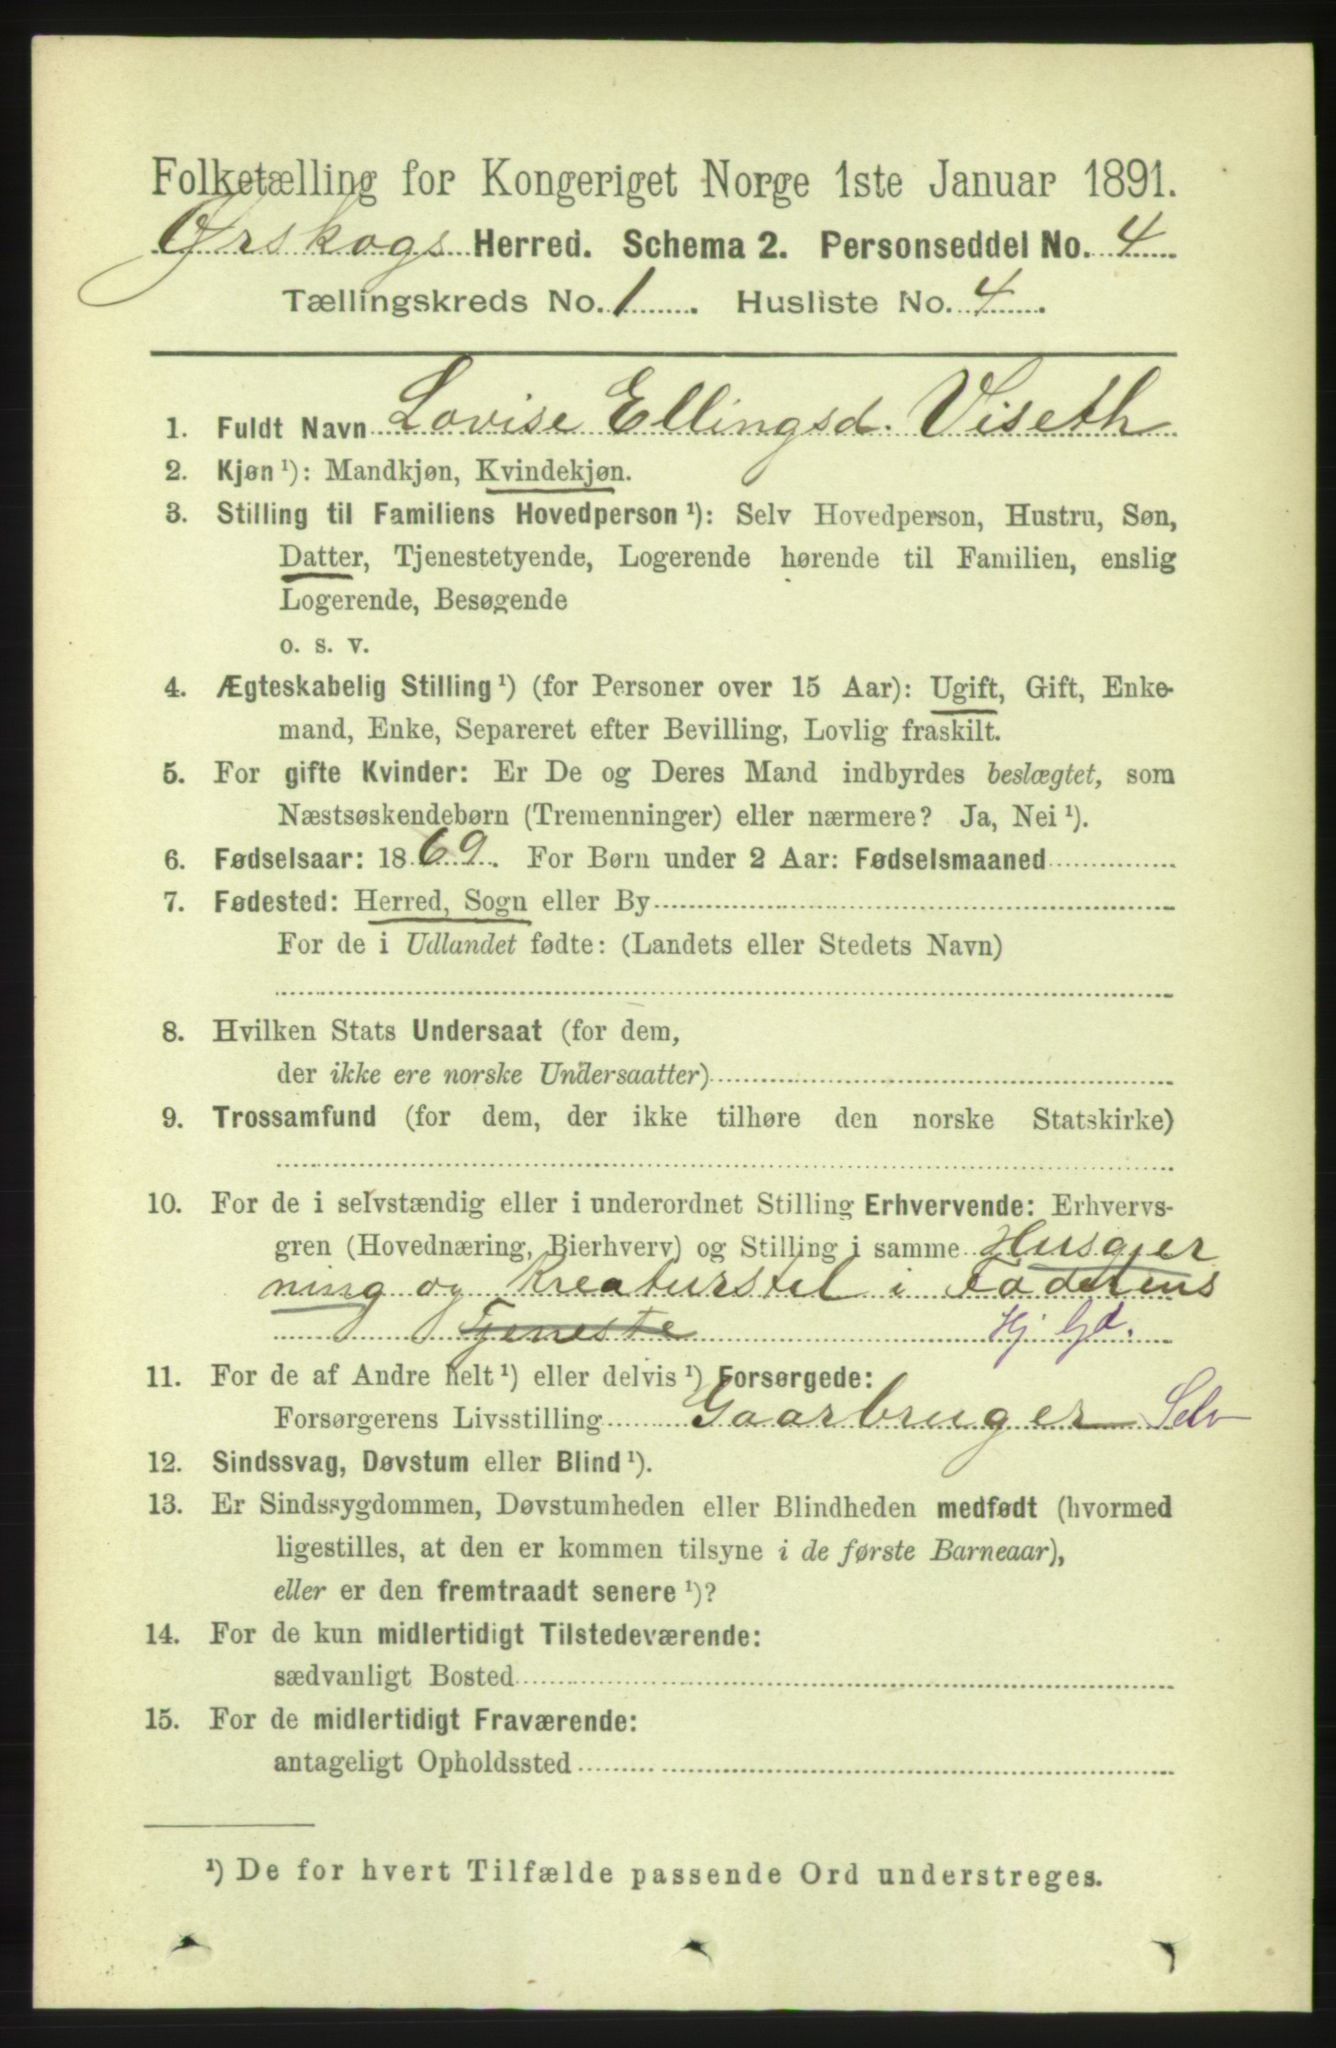 Folketælling for Kongeriget Norge 1ste Januar 1891.
Ørskogs Herred. Schema 2. Personseddel No. 4
Tællingskreds No. 1. Husliste No. 4.
1. Fuldt Navn Lovise Ellingsd. Viseth
2. Kjøn ¹): Mandkjøn, Kvindekjøn.
3. Stilling til Familiens Hovedperson ¹): Selv Hovedperson, Hustru, Søn,
Datter, Tjenestetyende, Logerende hørende til Familien, enslig
Logerende, Besøgende
o. s. v.
4. Ægteskabelig Stilling ¹) (for Personer over 15 Aar): Ugift, Gift, Enke-
mand, Enke, Separeret efter Bevilling, Lovlig fraskilt.
5. For gifte Kvinder: Er De og Deres Mand indbyrdes beslægtet, som
Næstsøskendebørn (Tremenninger) eller nærmere? Ja, Nei ¹).
6. Fødselsaar: 1869. For Børn under 2 Aar: Fødselsmaaned
7. Fødested: Herred, Sogn eller By
For de i Udlandet fødte: (Landets eller Stedets Navn)
8. Hvilken Stats Undersaat (for dem,
der ikke ere norske Undersaatter)
9. Trossamfund (for dem, der ikke tilhøre den norske Statskirke)
10. For de i selvstændig eller i underordnet Stilling Erhvervende: Erhvervs-
gren (Hovednæring, Bierhverv) og Stilling i samme Husgjer
ning og Kreaturstel i Faderens
Tjeneste Hj. Gd.
11. For de af Andre helt ¹) eller delvis ¹) Forsørgede:
Forsørgerens Livsstilling Gaarbruger Selv
12. Sindssvag, Døvstum eller Blind ¹).
13. Er Sindssygdommen, Døvstumheden eller Blindheden medfødt (hvormed
ligestilles, at den er kommen tilsyne i de første Barneaar),
eller er den fremtraadt senere ¹)?
14. For de kun midlertidigt Tilstedeværende:
sædvanligt Bosted
15. For de midlertidigt Fraværende:
antageligt Opholdssted
¹) De for hvert Tilfælde passende Ord understreges.